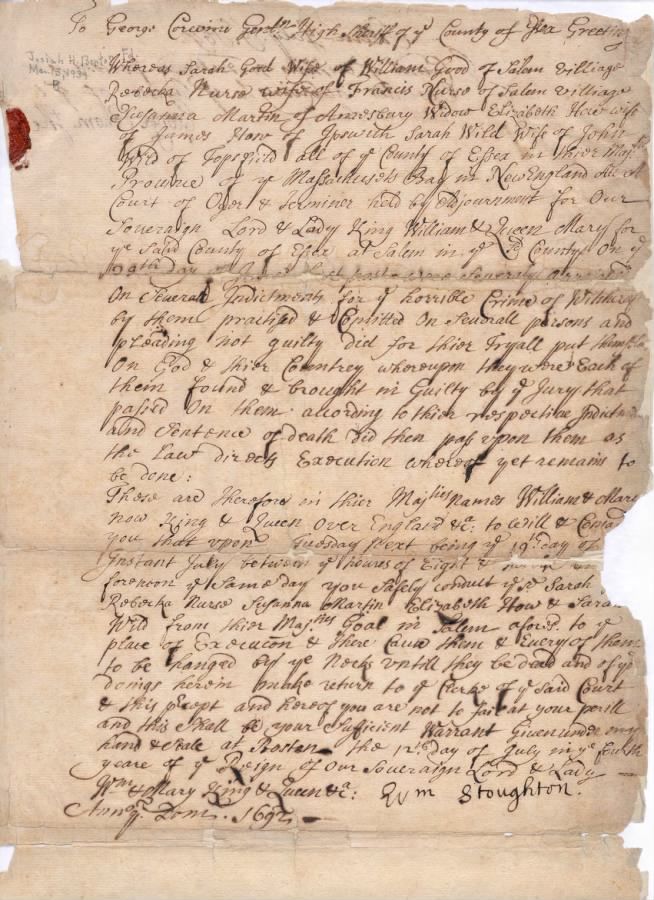 To George Corwine Gentn High Sheriff of ye County of Essex Greeting
Whereas Sarah Good Wife of William Good of Salem Villiage
Rebecka Nurse wife of Francis Nurse of Salem Villiage
Susanna Martin of Amesbury Widow Elizabeth How wife
of James How of Ipswich Sarah Wild Wife of John
Wild of Topsfield all of ye County of Essex in thier Majties
Province of ye Massachusets Bay in New England Att A
Court of Oyer & Terminer held by Adjournment for Our
Soveraign Lord & Lady King William & Queen Mary for
ye said County of Essex at Salem in ye sd County on ye
29th day of June last past were Severaly Arraigned
On Severall Indictments for ye horrible Crime of Witchcraft
by them practised & Comitted On Severall persons and
pleading not guilty did for thier Tryall put themselves
On God & thier Countrey whereupon they were Each of
them found & brought in Guilty by ye Jury that
passed On them according to thier respective Indictments
and Sentence of death did then pass upon them as
the Law directs Execution whereof yet remains to
be done:
These are Therefore in thier Majties names William & Mary
now King & Queen over England &ca: to Will & Comand
you that upon Tuesday next being ye 19th day of
Instant July between ye houres of Eight &
forenoon ye same day you Safely conduct ye sd Sarah
Rebecka Nurse Susanna Martin Elizabeth How & Sarah
Wild from thier Majties Goal in Salem aforesd to ye
place of Execucon & there Cause them & Every of them
to be hanged by ye Necks untill they be dead and of ye
doings herein make return to ye Clerke of ye said Court
& this precept and hereof you are not to fail at your perill
and this Shall be your Sufficient Warrant Given under my
hand & seale at Boston the 12th day of July in ye fourth
yeare of ye Reign of Our Soveraign Lord & Lady
Wm & Mary King & Queen &ca: Wm Stoughton
Annoq Dom. 1692